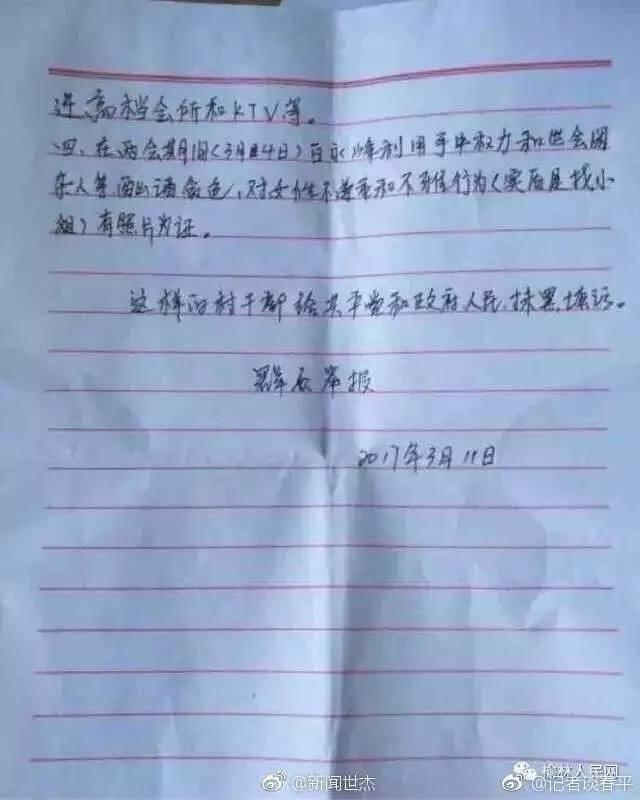 进高档会所和KTV等。
四、在两会期间(3月4日)白永峰利用手中权力和些会闲
杂人等面出酒氣色,对女性不尊重和不雅行为(实际是找小
姐)有照片为证。
这样的村干部给共产党和政府人民,抹黑填污。
群众举报
2017年3月11日
@新闻世杰
榆林人民网
@记者谈春平